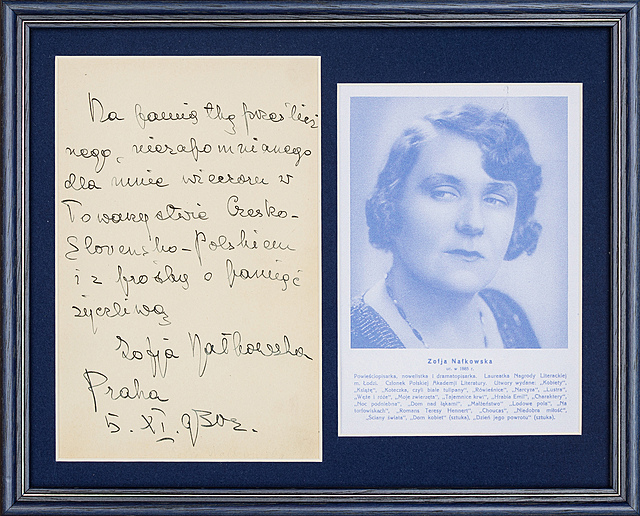 Na pamiątkę prześlicz
nego, niezapomnianego
dla mnie wieczoru w
Towarzystwie Czesko-
Slovensko-Polskiem
i z prośbą o pamięć
życzliwą
Zofja Nałkowska
Praha
5. XI. 930 r.
Zofja Nałkowska
ur. w 1885 r.
Powieściopisarka, nowelistka i dramatopisarka. Laureatka Nagrody Literackiej
m. Łodzi. Członek Polskiej Akademii Literatury. Utwory wydane: „Kobiety",
„Książę", „Koteczka, czyli białe tulipany", „Rówieśnice", „Narcyza", „Lustra",
„Węże i róże", „Moje zwierzęta", „Tajemnice krwi", „Hrabia Emil", „Charaktery",
„Noc podniebna", „Dom nad łąkami", „Małżeństwo", „Lodowe pola", „Na
torfowiskach", „Romans Teresy Hennert", „Choucas", „Niedobra miłość",
„Ściany świata", „Dom kobiet" (sztuka), „Dzień jego powrotu" (sztuka).